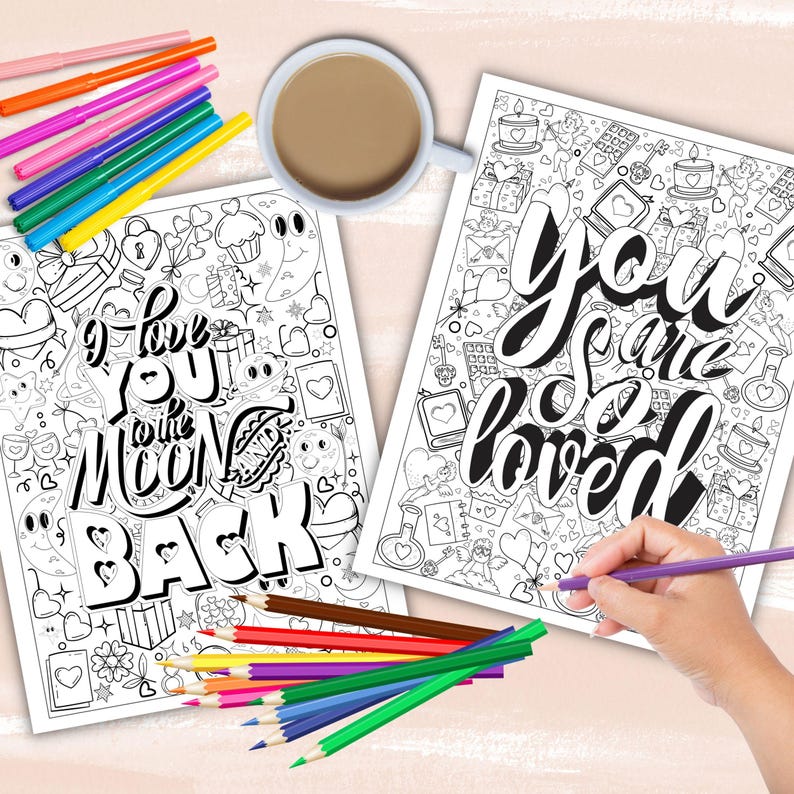 I love
YOU
to the
MOON
AND
BACK
you
are
so
loved